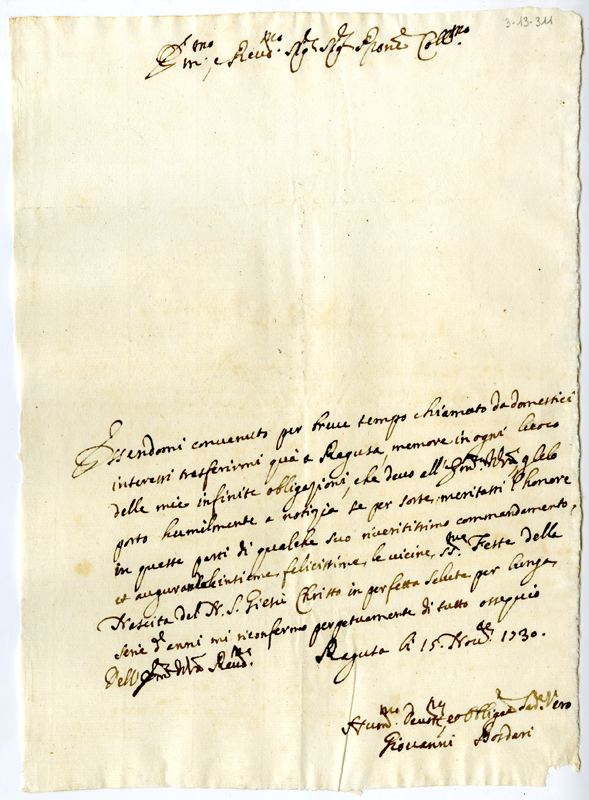 3-13-311
Em.mo e Rev.mo Sig.r Sig.r Pron.e Coll.mo
Essendomi convenuto per breve tempo chiamato da domestici
interessi trasferirmi quà a Ragusa, memore in ogni luoco
delle mie infinite obligazioni, che devo all' Em.za V.ra, glielo
porto humilmente a notizia se per sorte meritassi l'honore
in queste parti di qualche suo riveritissimo commandamento,
et augurandole insieme felicissime le vicine SS.me Feste della
Nascita del N. S. Giesù Christo in perfetta salute per lunga
serie d'anni mi riconfermo perpetuamente di tutto ossequio
Dell' Em.za V.ra Rev.ma
Ragusa li 15. Nov.re 1730.
Hum.mo Devot.mo et Oblig.mo Ser.re Vero
Giovanni Bosdari